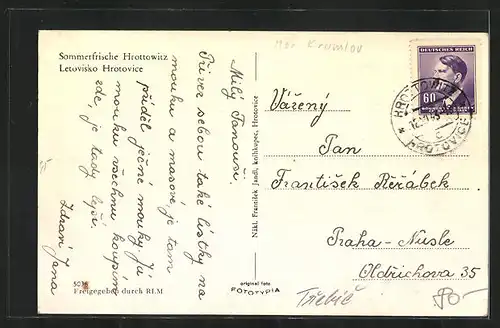 Mor. Krumlov
Sommerfrische Hrottowitz
Letovisko Hrotovice
DEUTSCHES REICH
60
HROTOVICE
Milý Fanouši.
Přivez sebou také lístky na
mouku a masové, je tam
příděl ječné mouky. Já
mouku všechnu koupím
zde, je tady lepší.
Zdraví Jana
Nákl. František Jandl, knihkupec, Hrotovice
Vážený
Pan
František Řeřábek
Praha-Nusle
Oldřichova 35
Freigegeben durch RLM
original foto
FOTOTYPIA
Třebíč
80-